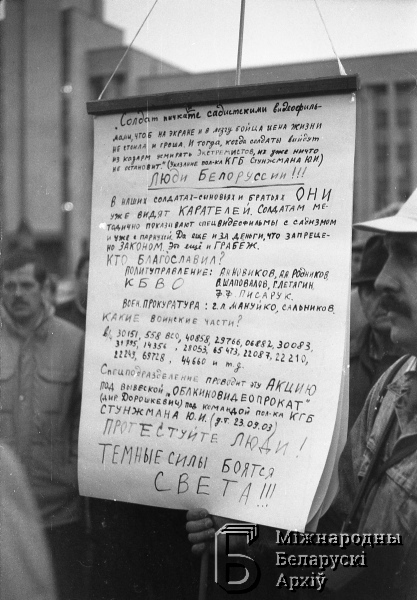 "Солдат пичкайте садистскими видеофиль-
мами, чтоб на экране и в мозгу бойца цена жизни
не стоила и гроша. И тогда, когда солдаты выйдут
из казарм усмирять экстремистов, их уже ничто
не остановит." (Указание пол-ка КГБ Стунжмана Ю.И)
ЛЮДИ БЕЛОРУССИИ!!!
В наших солдатах-сыновьях и братьях ОНИ
уже видят КАРАТЕЛЕЙ. Солдатам ме-
тодично показывают спецвидеофильмы с садизмом
и уже с порнухой. Да еще и за деньги, что запреще-
но ЗАКОНОМ. Это ещё и ГРАБЕЖ.
КТО БЛАГОСЛОВИЛ?
ПОЛИТУПРАВЛЕНИЕ: А.Новиков, Родников
КБВО В.Шаповалов, Г.Летягин,
Писарук.
ВОЕН. ПРОКУРАТУРА: Мануйко, Сальников.
КАКИЕ ВОИНСКИЕ ЧАСТИ?
30151, 558 ВСО, 40858, 29766, 06882, 30083,
31795, 14356, 28053, 65473, 22087, 22210,
22249, 69728, 44660 и т.д.
Спецподразделение проводит эту АКЦИЮ
под вывеской "ОБЛКИНОВИДЕОПРОКАТ"
(дир. Дорошкевич) под командой пол-ка КГБ
СТУНЖМАНА Ю.И. (р.т. 23.09.03)
ПРОТЕСТУЙТЕ ЛЮДИ!
ТЕМНЫЕ СИЛЫ БОЯТСЯ
СВЕТА!!!
Міжнародны
Беларускі
Архіў